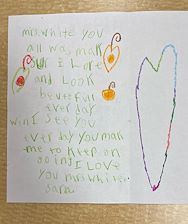 mrs.white you
all was mak
sur I Lore
and Look
beuteful
ever day
wen I see you
ever day you mak
me to keep on
goin! I LOVE
you mrs white
Sara